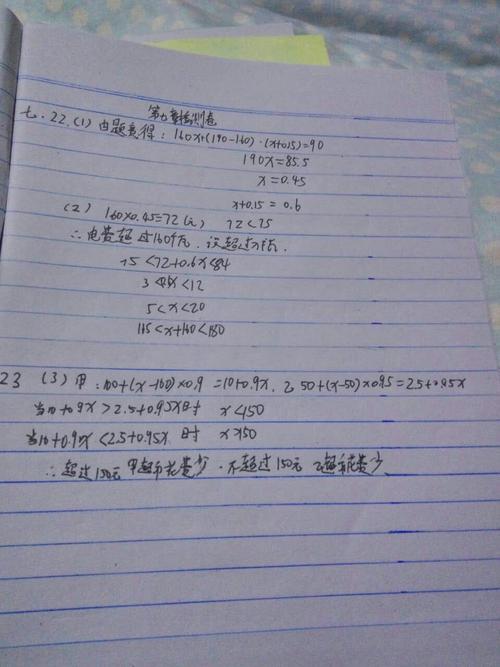 第九章检测卷
七.22.(1)由题意得:160x+(190-160)·(x+0.15)=90
190x=85.5
x=0.45
x+0.15=0.6
(2) 160×0.45=72(元) 72<75
∴电费超过160千瓦.设超过x千瓦.
75<72+0.6x<84
3<0.6x<12
5<x<20
165<x+160<180
23 (3)甲:100+(x-100)×0.9=10+0.9x.乙50+(x-50)×0.95=2.5+0.95x
当10+0.9x>2.5+0.95x时 x<150
当10+0.9x<2.5+0.95x时 x>150
∴超过150元甲超市花费少.不超过150元乙超市花费少